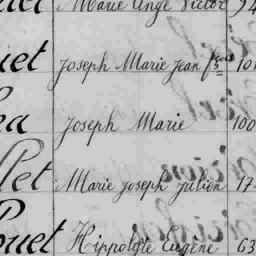 Marie Ange Victor 94
uet Joseph Marie Jean fs 101
Joseph Marie 100
let Marie Joseph Julien 17
ouet Hippolyte Eugène 63